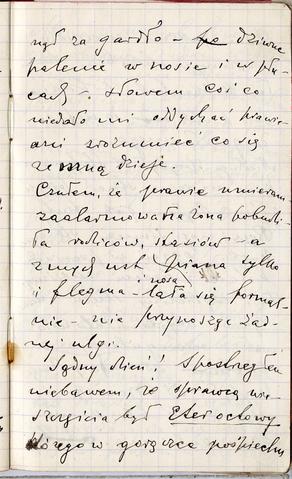 nął za gardło – dziwne
palenie w nosie i w płu
cach – słowem coś co
niedało mi oddychać prawie
ani zrozumieć co się
ze mną dzieje.
Czułem, że prawie umieram
zaalarmowała żona pobudzi
ła rodziców, Stasiów – a
z mych ust piana tylko
i flegma – i nosa lała się formal
nie – nie przynosząc żad
nej ulgi.
Sądny dzień! Spostrzegłem
niebawem, że sprawcą nie
szczęścia był Eter octowy
którego w gorączce pośpiechu